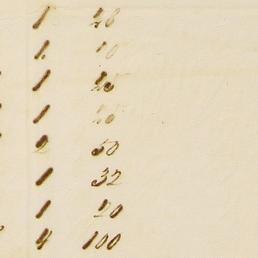 1 28
1 10
1 25
1 20
2 50
1 32
1 20
4 100